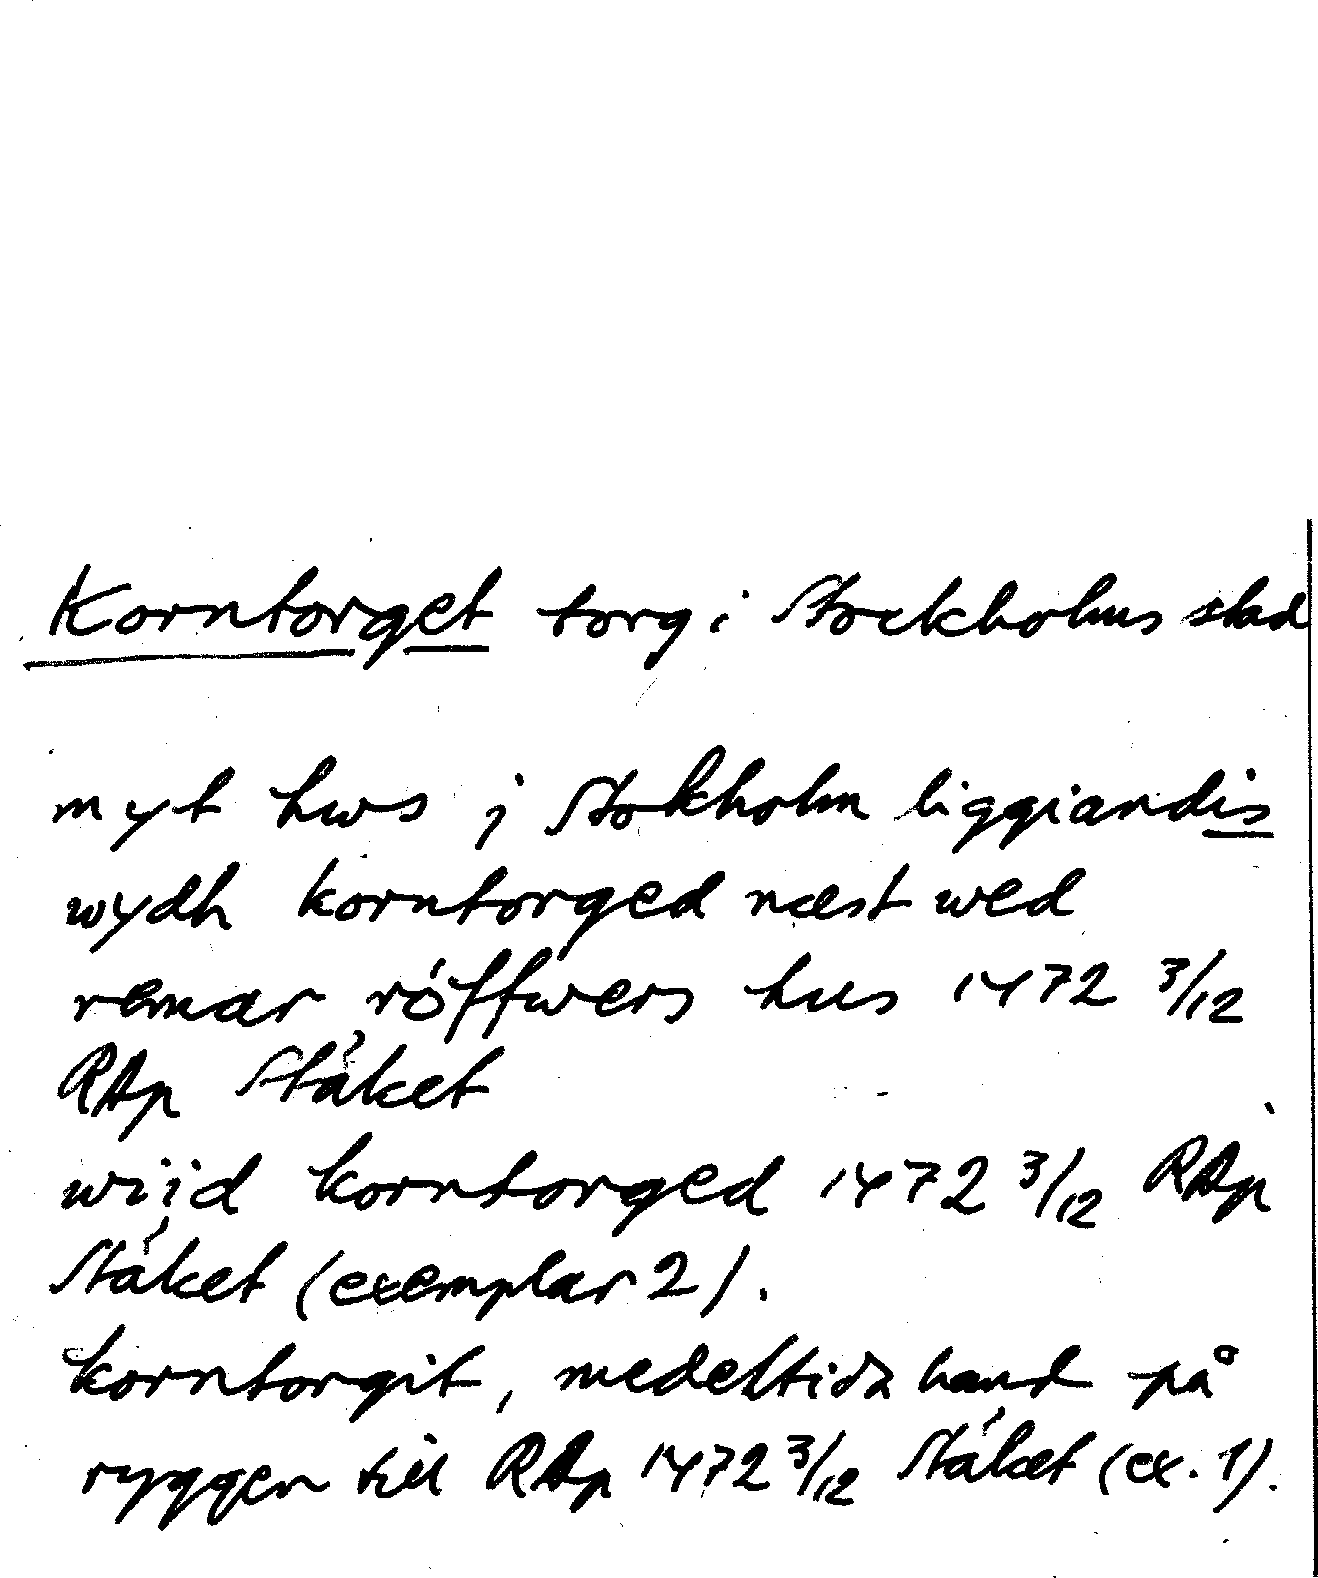 Korntorget torg i Stockholms stad
myt hws j Stokholm liggiandis
wydh korntorged næst wed
remar röffwers hus 1472 3/12
RAp Stäket
wiid korntorged 1472 3/12 RAp
Stäket (exemplar 2).
korntorgit, medeltida hand på
ryggen till RAp 1472 3/12 Stäket (ex. 1).